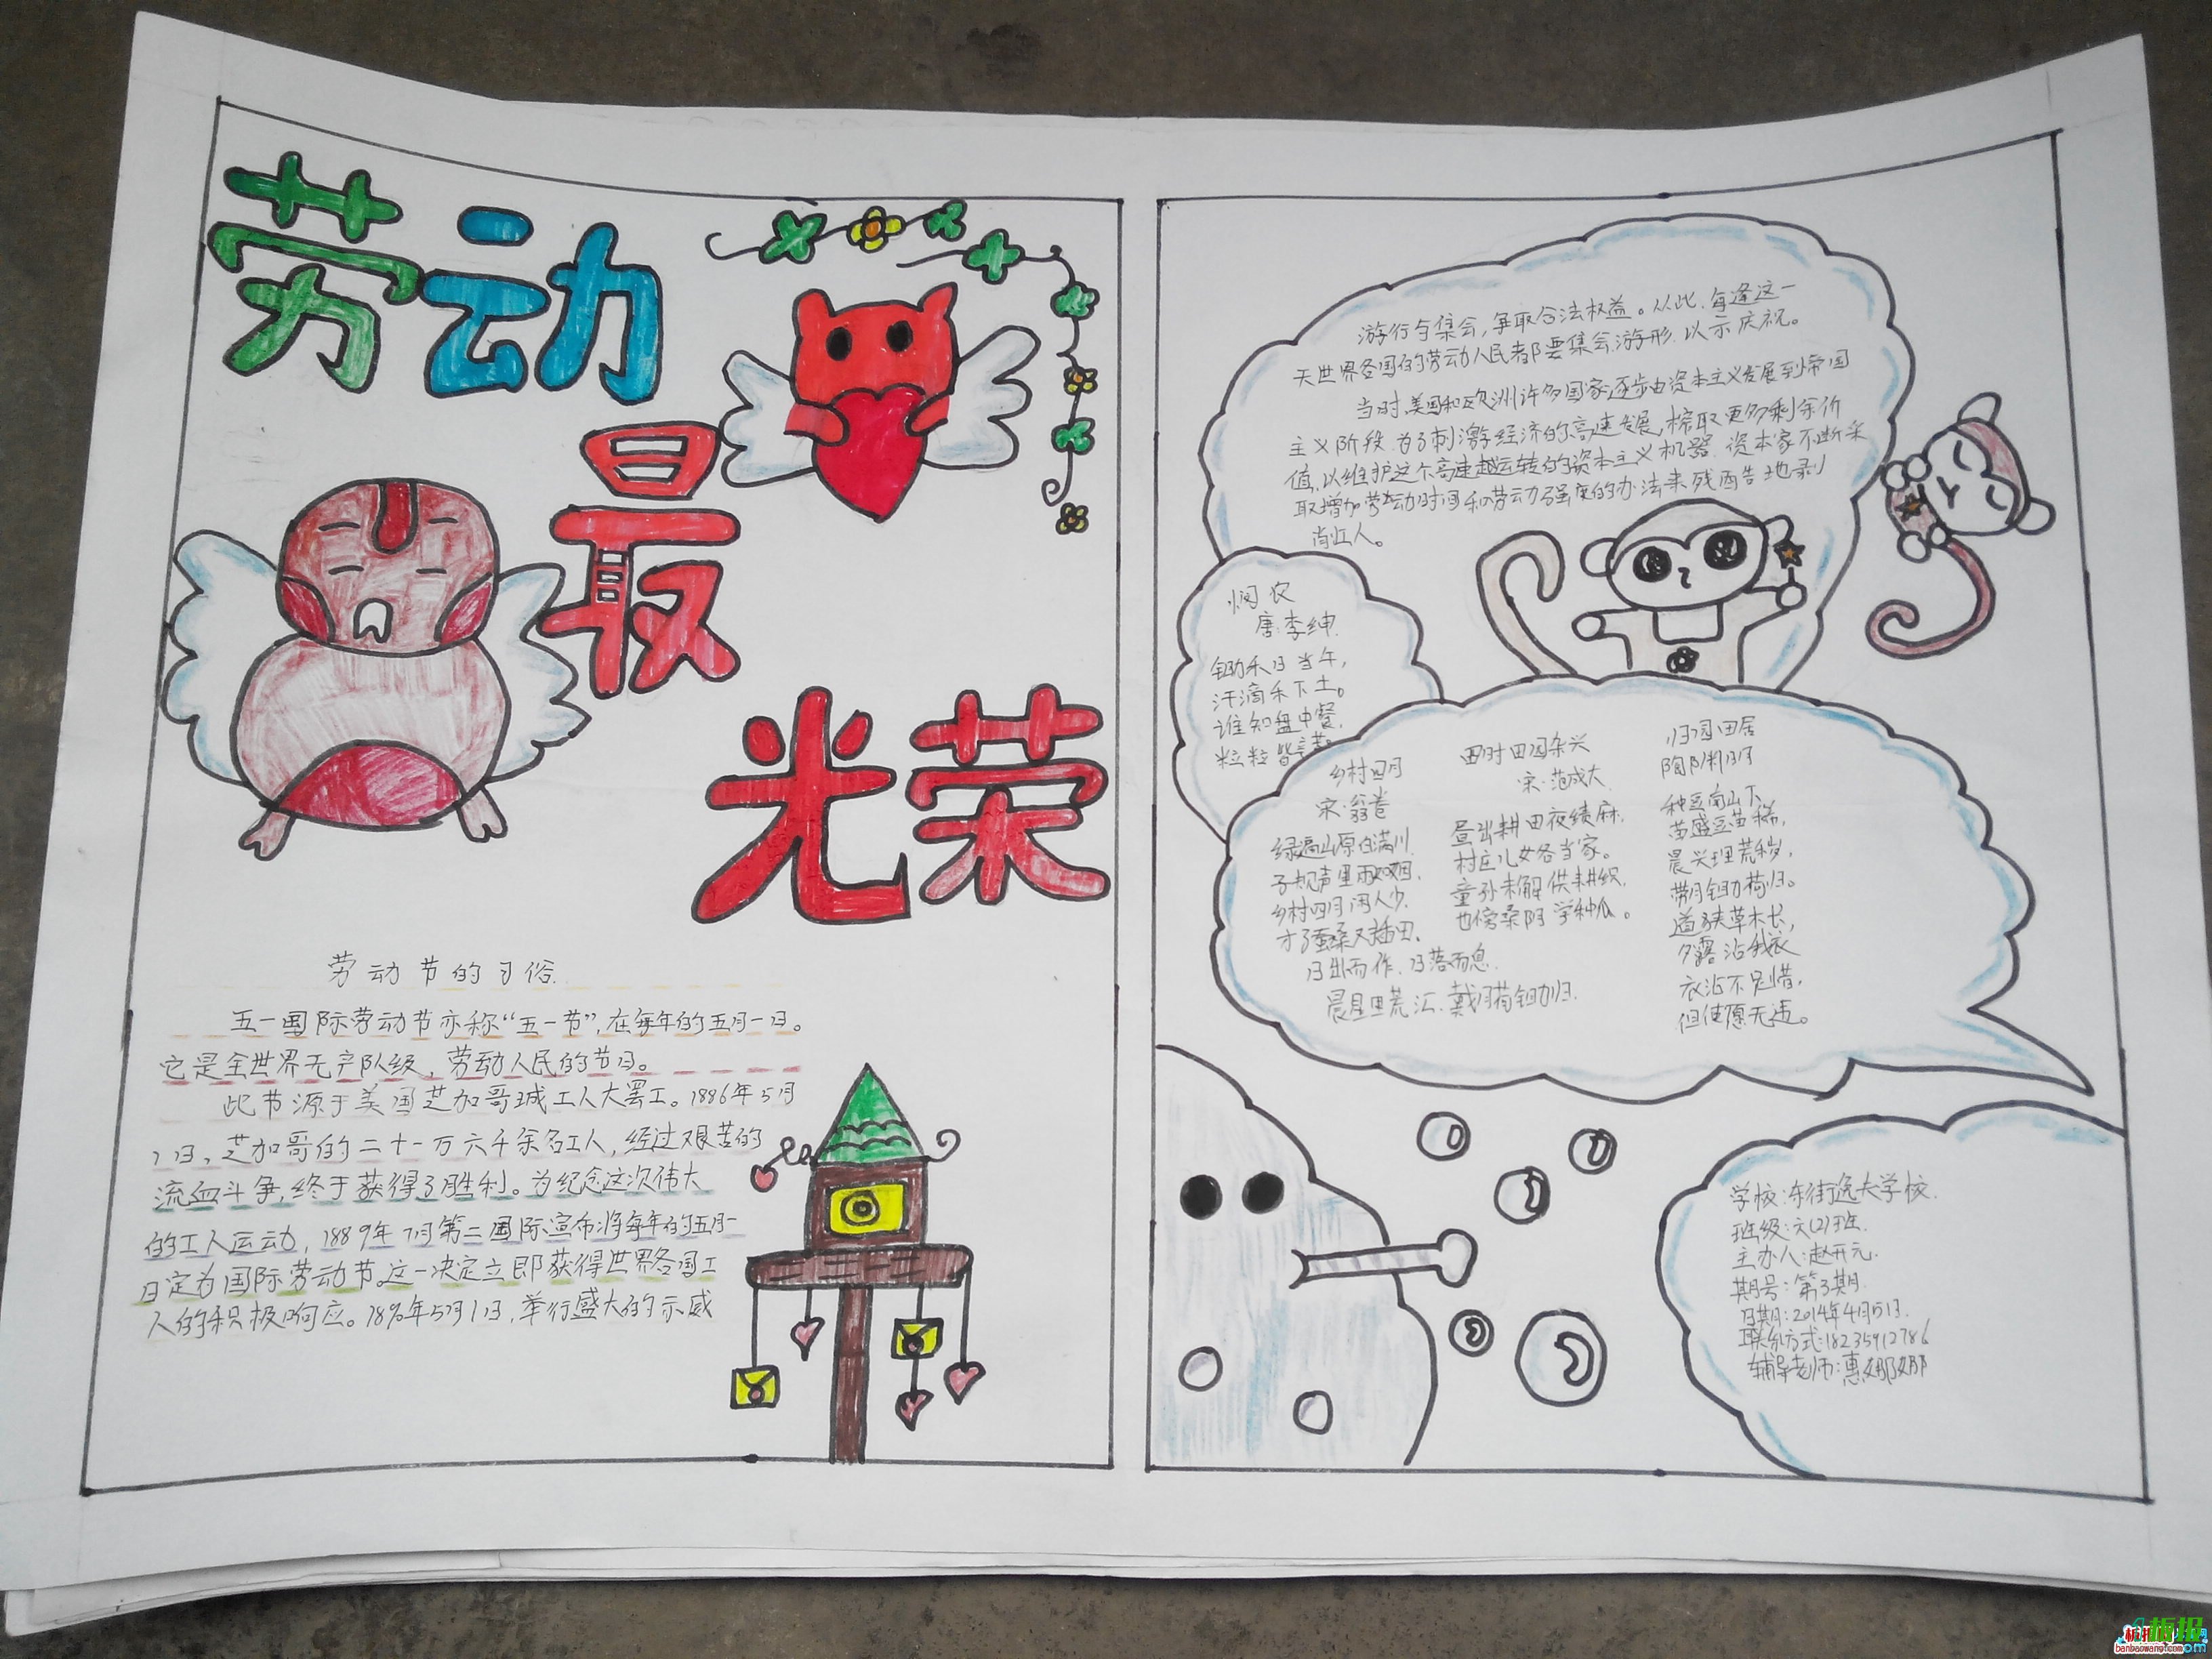 劳动
最
光荣
劳动节的习俗.
五一国际劳动节亦称“五一节”,在每年的五月一日。
它是全世界无产队级,劳动人民的节日。
此节源于美国芝加哥城工人大罢工。1886年5月
1日,芝加哥的二十一万六千余名工人,经过艰苦的
流血斗争,终于获得了胜利。为纪念这次伟大
的工人运动,1889年7月第二国际宣布将每年的五月一
日定为国际劳动节。这一决定立即获得世界各国工
人的积极响应。1890年5月1日,举行盛大的示威
游行与集会,争取合法权益。从此,每逢这一
天世界各国的劳动人民都要集会.游形.以示庆祝。
当时,美国和欧洲许多国家,逐步由资本主义发展到帝国
主义阶段.为了刺激经济的高速发展,榨取更多剩余价
值,以维护这个高速运转的资本主义机器.资本家不断采
取增加劳动时间和劳动强度的办法来残酷地剥
削工人。
悯农
唐:李绅.
锄禾日当午,
汗滴禾下土。
谁知盘中餐,
粒粒皆辛苦。
乡村四月
宋:翁卷
绿遍山原白满川.
子规声里雨如烟.
乡村四月闲人少.
才了蚕桑又插田.
日出而作.日落而息.
晨星理荒汇.戴月荷锄归.
四时田园杂兴
宋:范成大
昼出耕田夜绩麻.
村庄儿女各当家。
童孙未解供耕织.
也傍桑阴学种瓜。
归园田居
陶渊明
种豆南山下
苗盛豆苗稀,
晨兴理荒秽,
带月锄荷归。
道狭草木长,
夕露沾我衣
衣沾不足惜,
但使愿无违。
学校:东街逸夫学校.
班级:六(2)班.
主办人:赵开元.
期号:第3期.
日期:2014年4月51日.
联系方式:18235912786
辅导老师:惠娜娜
板报网
banbaowang.com